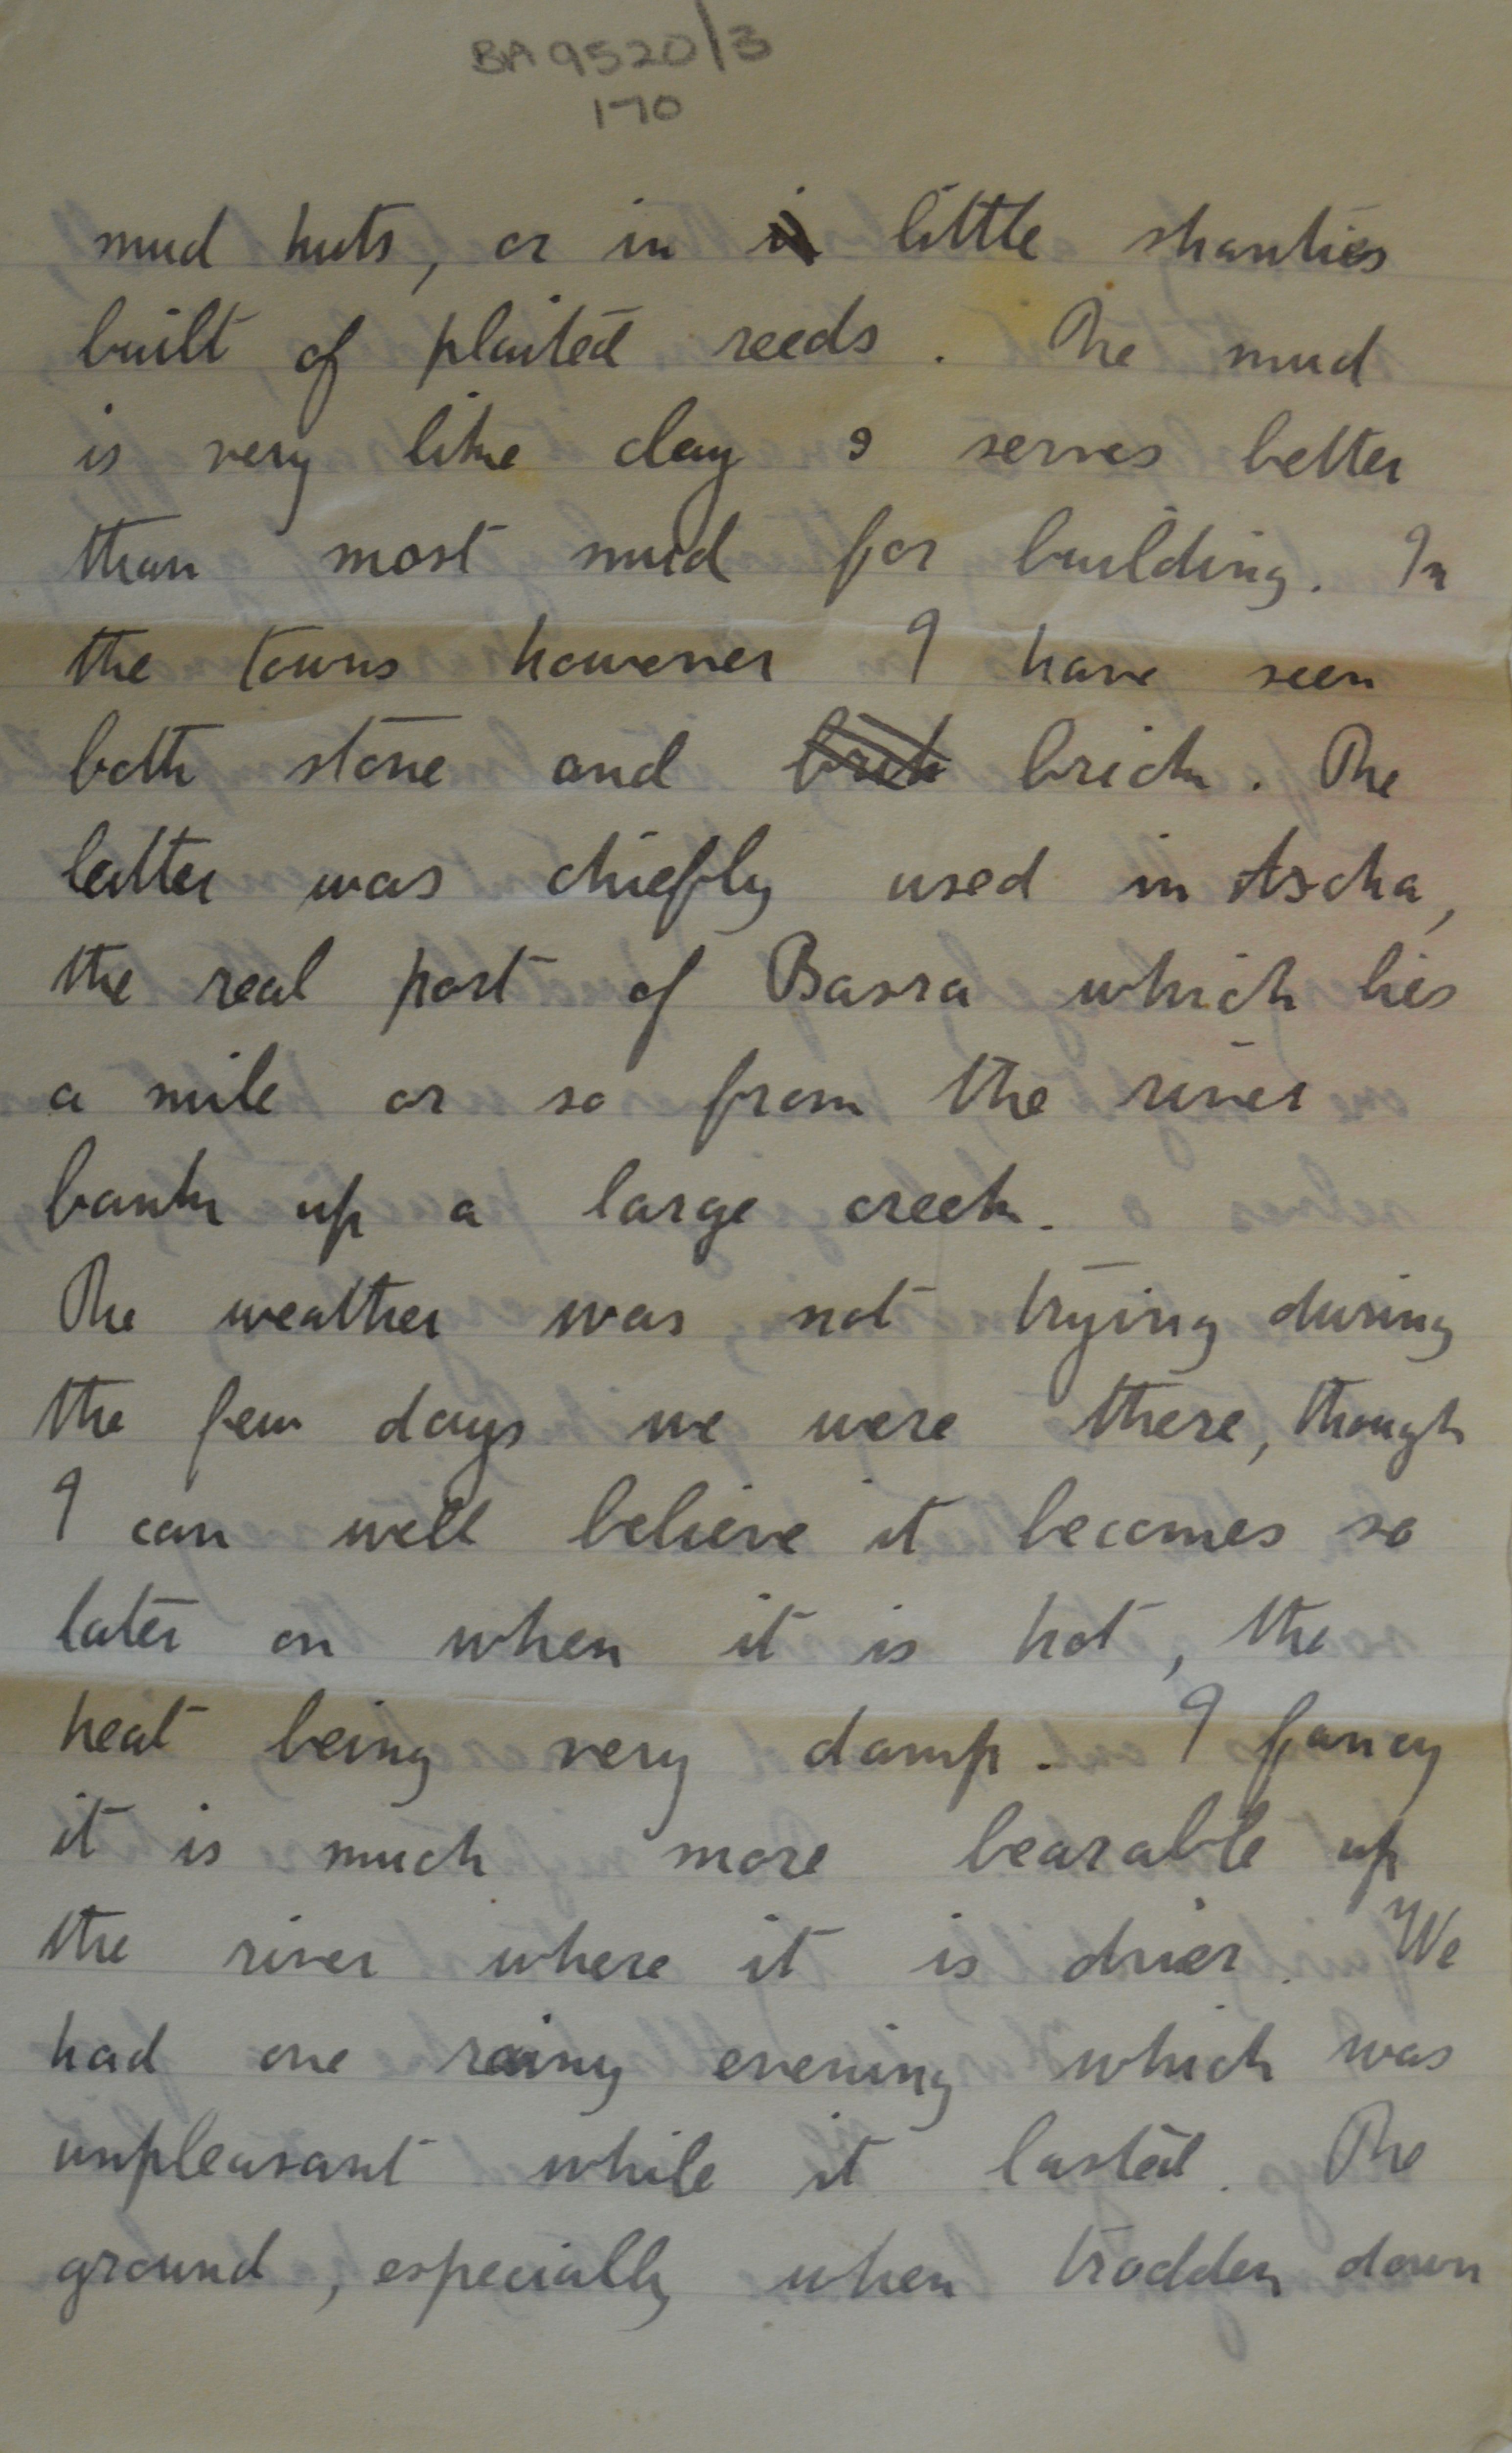 BA 9520/3
170
mud huts, or in little shanties
built of plaited reeds. The mud
is very like clay & serves better
than most mud for building. In
the towns however I have seen
both stone and brick brick. The
latter was chiefly used in
the real port of Basra which lies
a mile or so from the river
bank up a large creek.
The weather was not trying during
the few days we were there, though
I can well believe it becomes so
later on when it is hot, the
heat being very damp. I fancy
it is much more bearable up
the river where it is drier. We
had one rainy evening which was
unpleasant while it lasted. The
ground, especially when trodden down